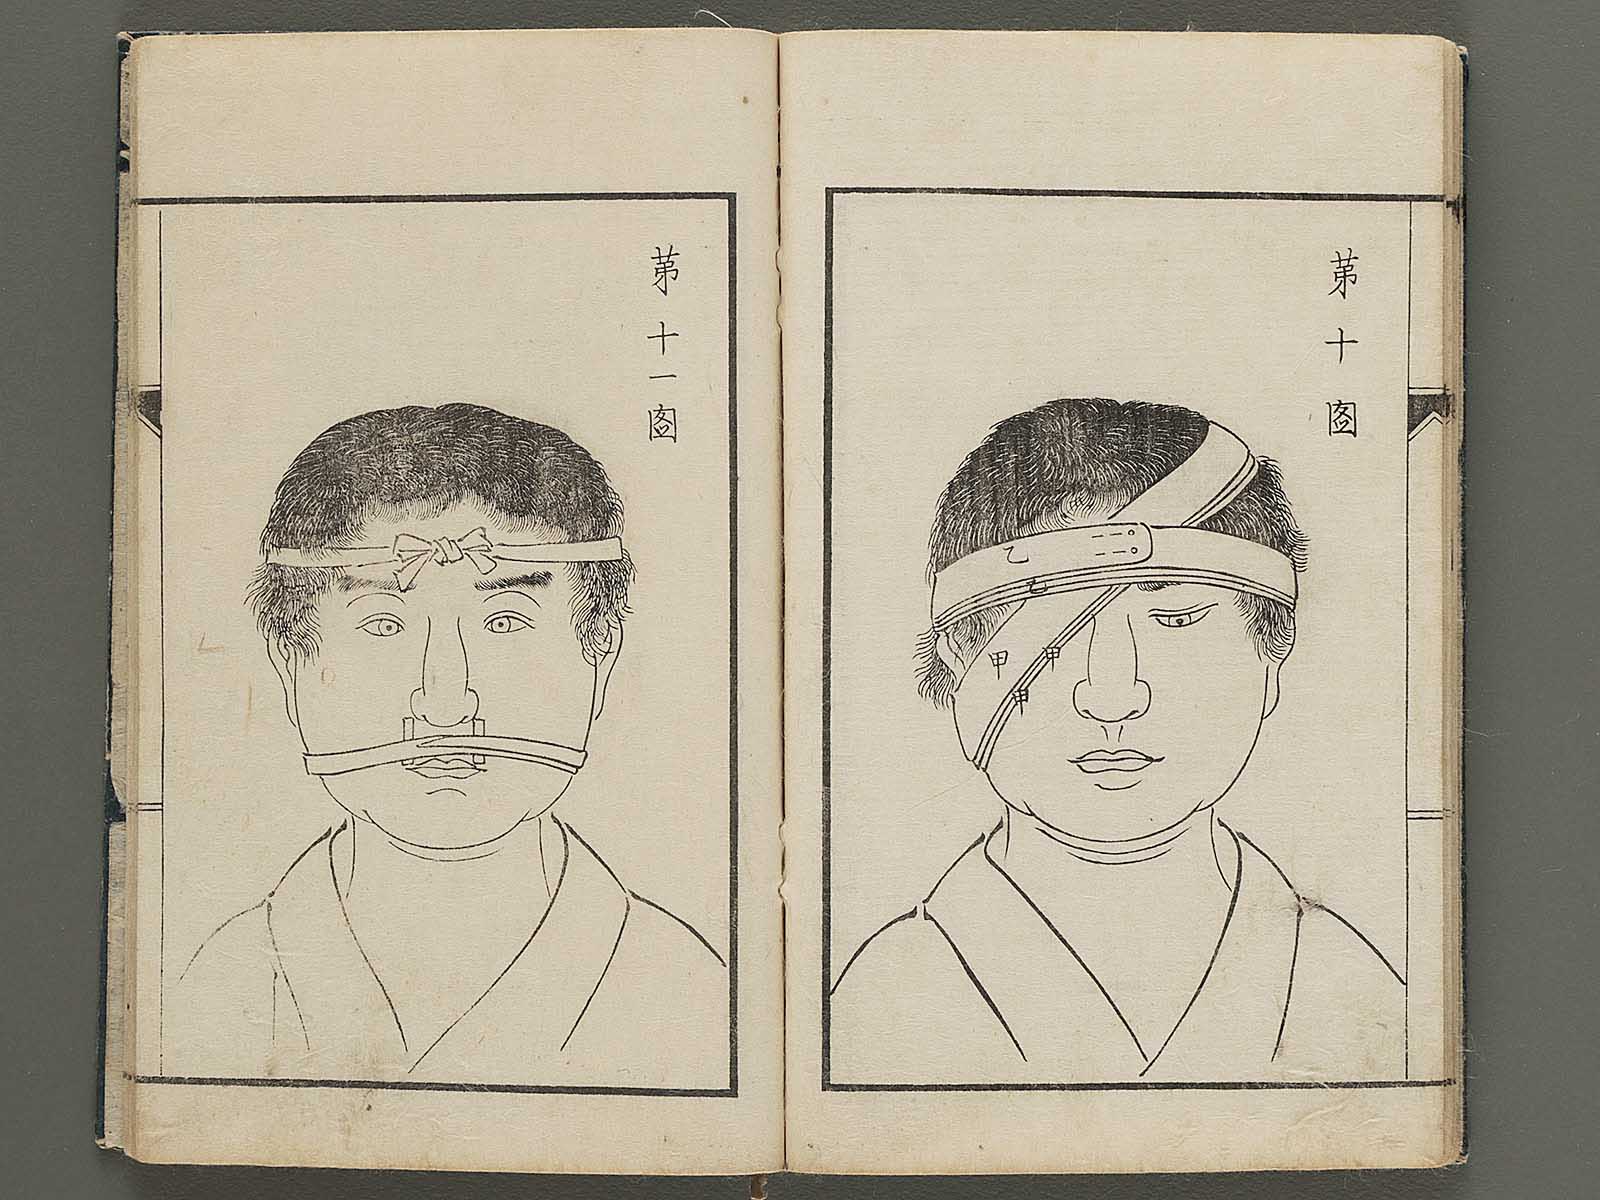 第十圖
乙
乙
甲
甲
甲
第十一圖